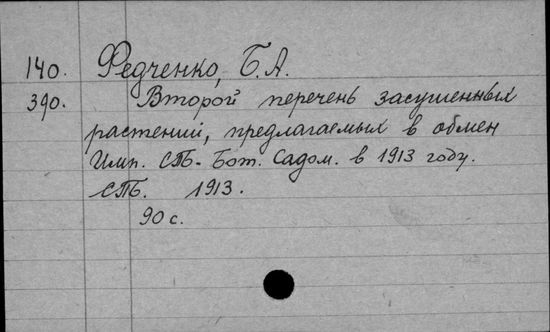 140. Федченко, Б. А.
390. Второй перечень засушенных
растений, предлагаемых в обмен
Имп. СПБ. Бот. Садом. в 1913 году.
СПБ. 1913.
90 с.